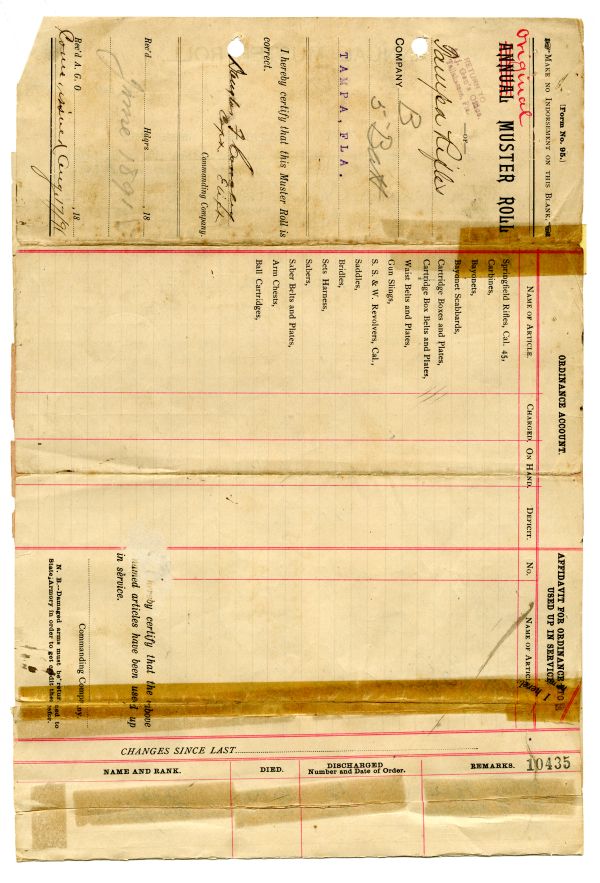 (Form No. 95.)
MAKE NO INDORSEMENT ON THIS BLANK.
Original
ANNUAL MUSTER ROLL
RETURN TO
—OF—
Tampa Rifles
COMPANY B
5 Batt
TAMPA, FLA.
I hereby certify that this Muster Roll is
correct.
Commanding Company.
Rec'd Hdqrs , 18
June 1891
Rec'd A. G. O , 18
Aug 17/91
ORDINANCE ACCOUNT.
NAME OF ARTICLE. CHARGED. ON HAND. DEFICIT.
Springfield Rifles, Cal. 45,
Carbines,
Bayonets,
Bayonet Scabbards,
Cartridge Boxes and Plates,
Cartridge Box Belts and Plates,
Waist Belts and Plates,
Gun Slings,
S. S. & W. Revolvers, Cal.,
Saddles,
Bridles,
Sets Harness,
Sabers,
Saber Belts and Plates,
Arm Chests,
Ball Cartridges,
AFFIDAVIT FOR ORDINANCE
USED UP IN SERVICE
No. NAME OF ARTICLE
hereby certify that the above
named articles have been used up
in service.
Commanding Company.
N. B.—Damaged arms must be returned to
State Armory in order to get credit therefor.
CHANGES SINCE LAST
NAME AND RANK. DIED. DISCHARGED REMARKS.
Number and Date of Order.
10435